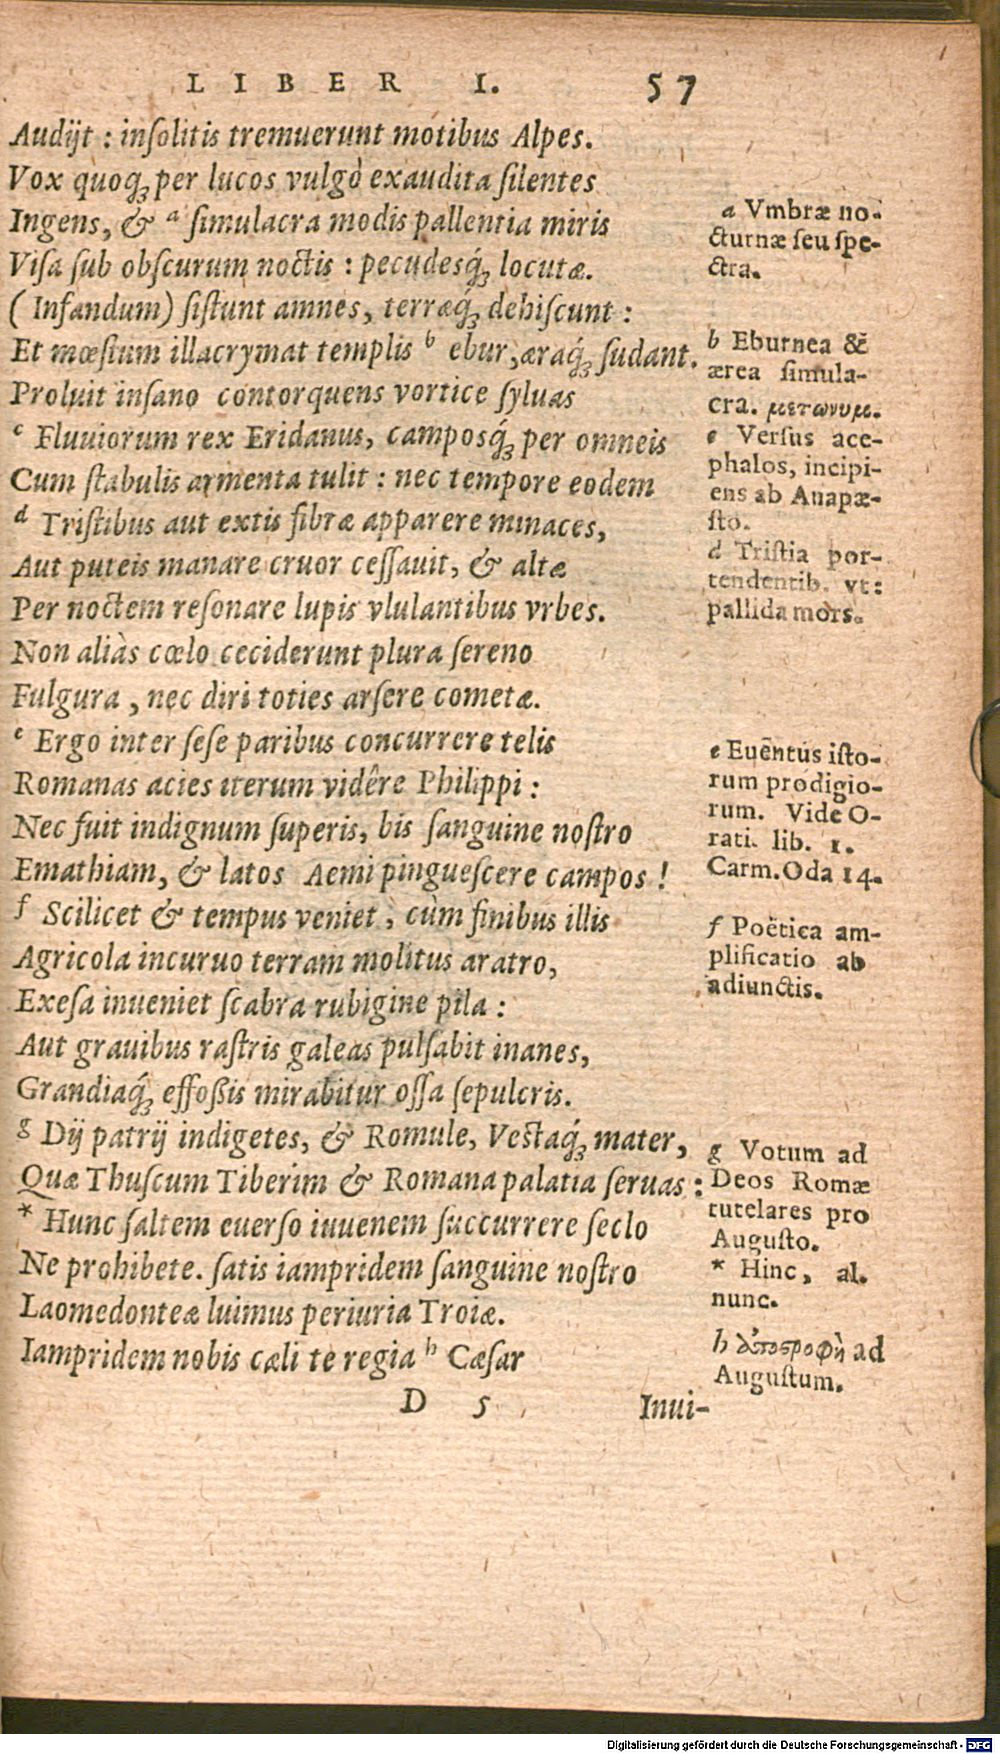 LIBER I. 57
Audijt : inſolitis tremuerunt motibus Alpes.
Vox quoq; per lucos vulgò exaudita ſilentes
Ingens, & a ſimulacra modis pallentia miris
Viſa ſub obſcurum noctis : pecudesq́; locutæ.
( Infandum) ſiſtunt amnes, terræq́; dehiſcunt :
Et mœſtum illacrymat templis b ebur, æraq́; ſudant.
Proluit inſano contorquens vortice ſyluas
c Fluuiorum rex Eridanus, camposq́; per omneis
Cum ſtabulis armenta tulit : nec tempore eodem
d Triſtibus aut extis fibræ apparere minaces,
Aut puteis manare cruor ceſſauit, & altæ
Per noctem reſonare lupis vlulantibus vrbes.
Non aliàs cœlo ceciderunt plura ſereno
Fulgura , nec diri toties arſere cometæ.
e Ergo inter ſeſe paribus concurrere telis
Romanas acies iterum vidêre Philippi :
Nec fuit indignum ſuperis, bis ſanguine noſtro
Emathiam, & latos Aemi pingueſcere campos !
f Scilicet & tempus veniet , cùm finibus illis
Agricola incuruo terram molitus aratro,
Exeſa inueniet ſcabra rubigine pila :
Aut grauibus raſtris galeas pulſabit inanes,
Grandiaq́; effoßis mirabitur oſſa ſepulcris.
g Dij patrij indigetes, & Romule, Veſtaq́; mater,
Quæ Thuſcum Tiberim & Romana palatia ſeruas :
* Hunc ſaltem euerſo iuuenem ſuccurrere ſeclo
Ne prohibete. ſatis iampridem ſanguine noſtro
Laomedonteæ luimus periuria Troiæ.
Iampridem nobis cæli te regia h Cæſar
D 5 Inui-
a Vmbræ no-
cturnæ ſeu ſpe-
ctra.
b Eburnea &
ærea ſimula-
cra. μετωνυμ.
c Verſus ace-
phalos, incipi-
ens ab Anapæ-
ſto.
d Triſtia por-
tendentib. vt:
pallida mors.
e Euẽntus iſto-
rum prodigio-
rum. Vide O-
rati. lib. 1.
Carm. Oda 14.
f Poëtica am-
plificatio ab
adiunctis.
g Votum ad
Deos Romæ
tutelares pro
Auguſto.
* Hinc, al.
nunc.
h ἀποςροφὴ ad
Auguſtum.
Digitalisierung gefördert durch die Deutsche Forschungsgemeinschaft - DFG